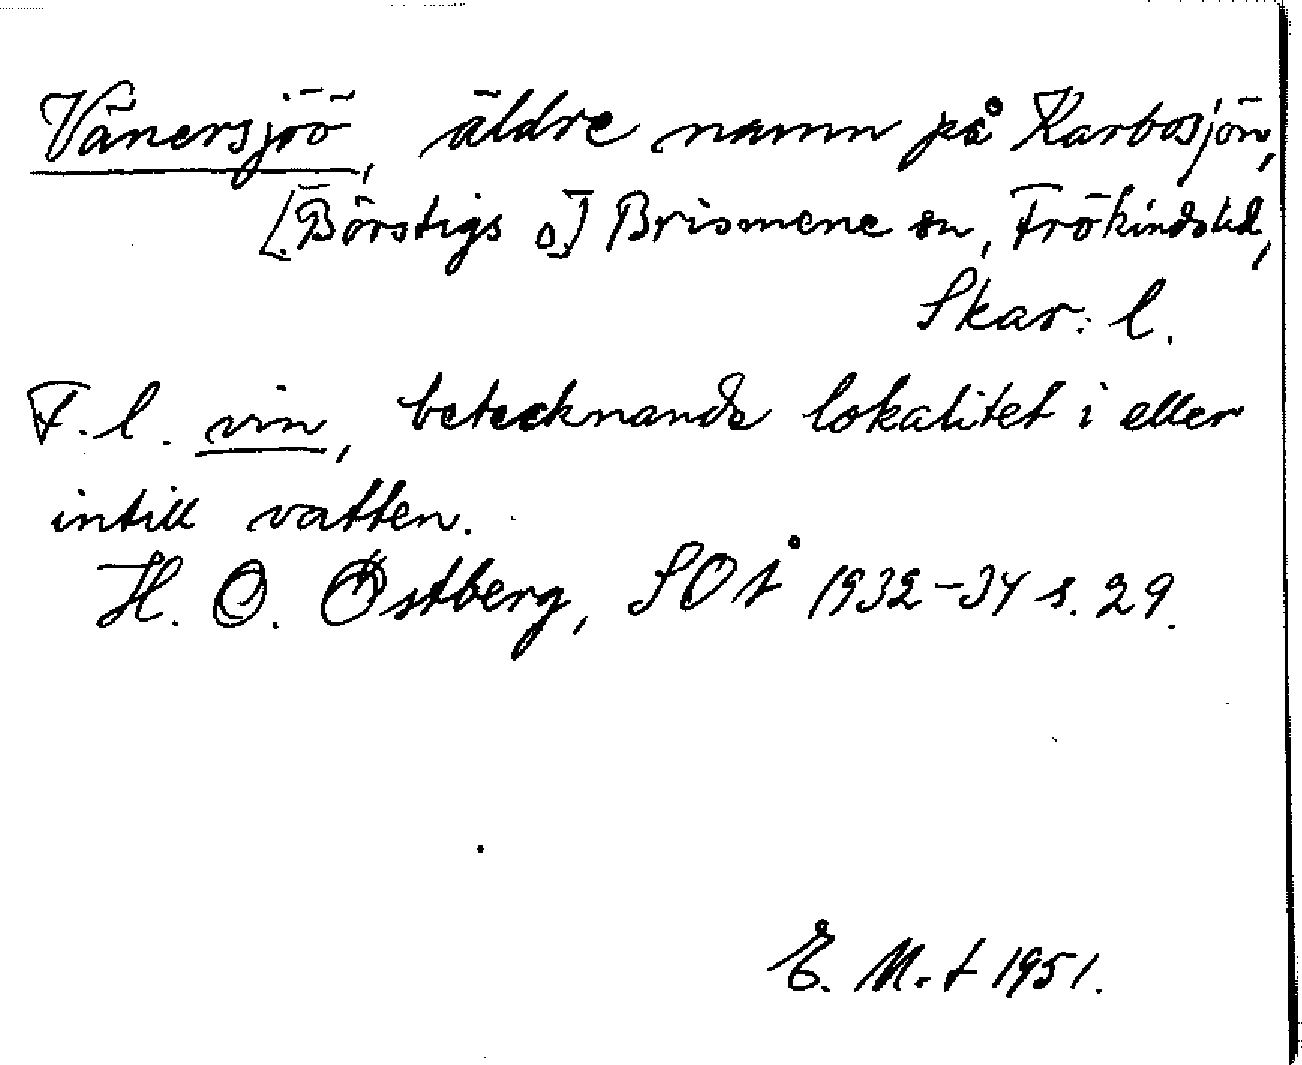 Vänersjöö, äldre namn på Karbosjön,
[Börstigs o] Brismene sn, Frökinds hd,
Skar. l.
F.l. vin, betecknande lokalitet i eller
intill vatten.
H. O. Östberg, SOÅ 1932-34 s. 29.
E. M-t 1951.